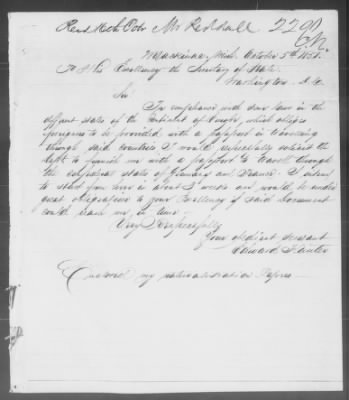 2290
Mackinac, Mich. October 5th 1858.
To His Excellency the Secretary of State.
Washington D.C.
Sir
In compliance with our law in the
different states of the Continent of Europe, which obliges
foreigners to be provided with a passport in traveling
through said countries I would respectfully solicit the
Dept to furnish me with a passport to travell through
the confederal states of Germany and France. I intend
to start from here in about 3 weeks and would be under
great obligations to your Excellency if said Document
could reach me in time.
Very Respectfully
Your obedient servant
Edward
Enclosed my naturalisation Papers